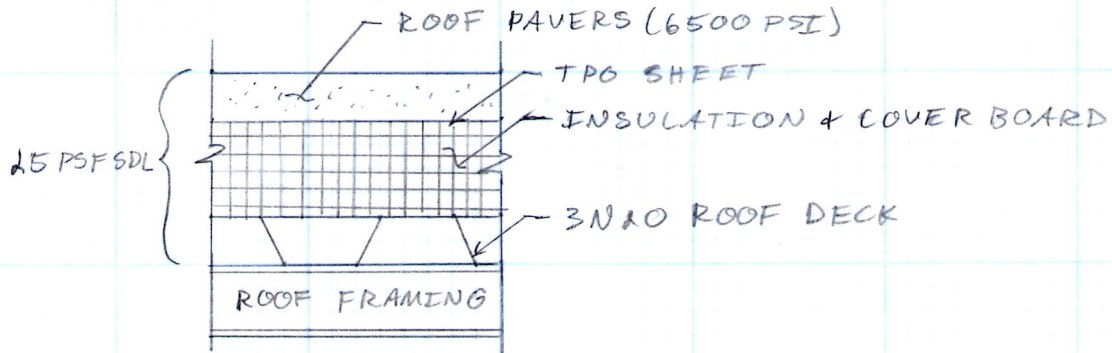 ROOF PAVERS (6500 PSI)
TPO SHEET
INSULATION & COVER BOARD
25 PSF SDL
3N20 ROOF DECK
ROOF FRAMING